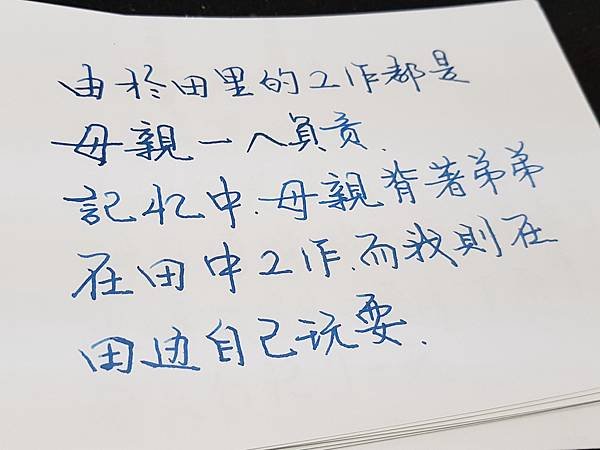 由於田里的工作都是
母親一人負責.
記忆中.母親背著弟弟
在田中工作.而我則在
田边自己玩耍.